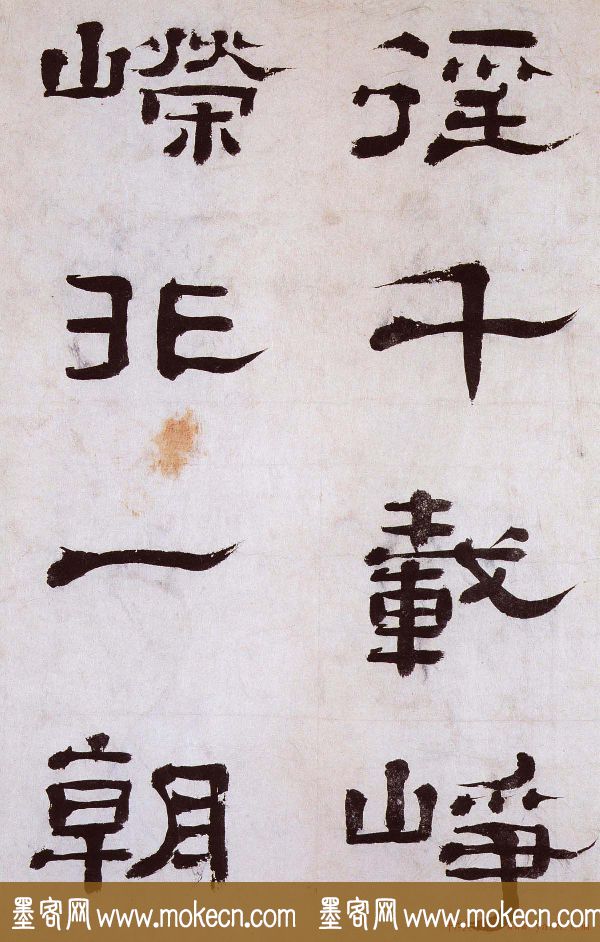 徑千載崢
嶸非一朝
墨客网 www.mokecn.com 墨客网 www.mokecn.com